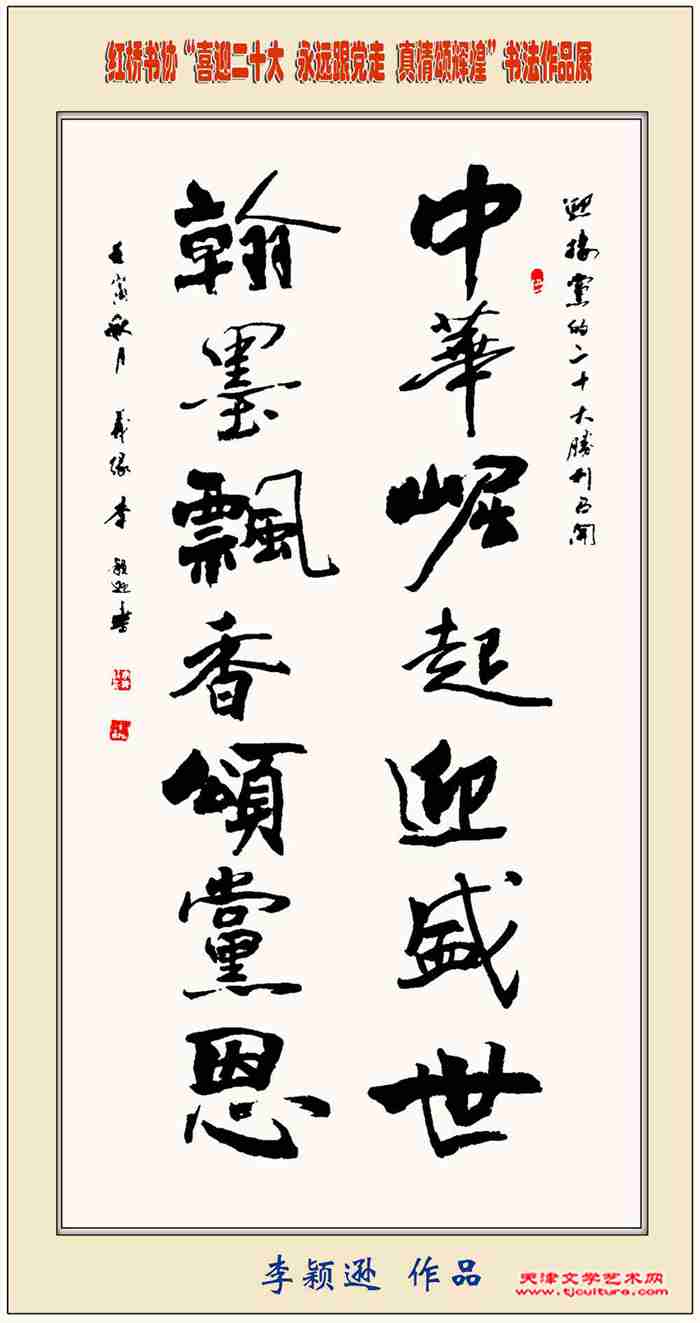 红桥书协“喜迎二十大 永远跟党走 真情颂辉煌”书法作品展
迎接黨的二十大勝利召開
中華崛起迎盛世
翰墨飄香頌黨恩
壬寅秋月 義緣 李穎逊書
李颖逊 作品
天津文学艺术网
www.tjculture.com